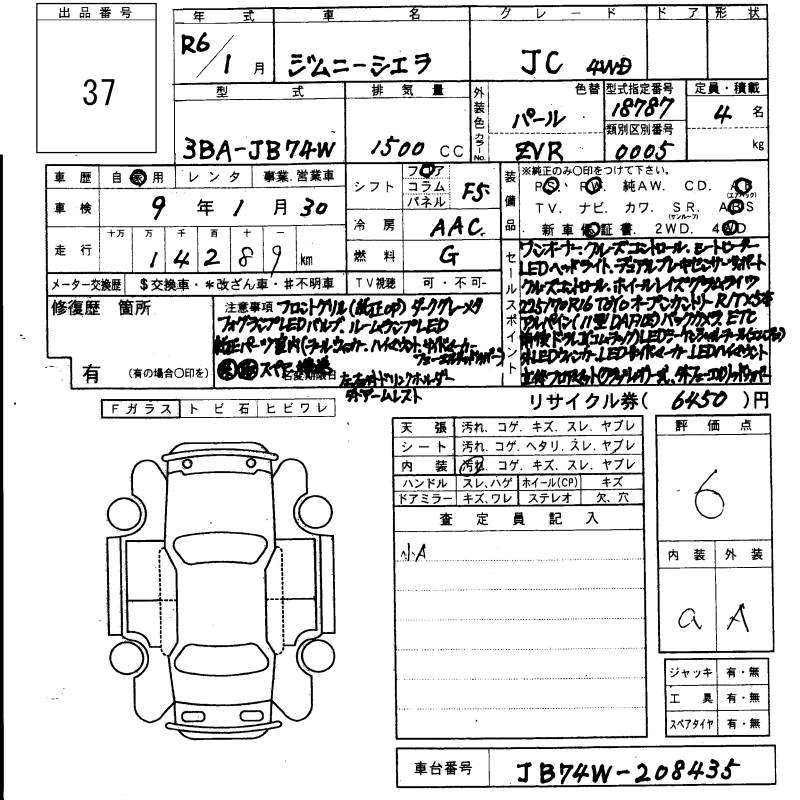 出品番号
37
年式 車名 グレード ドア形状
R6/1月 ジムニーシエラ JC 4WD
型式 排気量 外装色 色替 カラーNo. 型式指定番号 定員・積載
3BA-JB74W 1500CC パール 18787 4名
ZVR 類別区別番号 0005 kg
車歴 自家用 レンタ 事業、営業車
シフト フロア コラム パネル F5
装備品 ※純正のみ○印をつけて下さい。
PS、PW、純AW、CD、AB (エアバック)
TV、ナビ、カワ、SR、ABS (サンルーフ)
新車保証書、2WD、4WD
車検 9年1月30
冷房 AAC
走行 十万 万 千 百 十
14289km
燃料 G
メーター交換歴 $交換車・*改ざん車・#不明車 TV視聴 可・不可
セールスポイント
ワンオーナー クルーズコントロール、シートヒーター
LEDヘッドライト、デュアルブレーキセンサーサポート
クルーズコントロール、ホイールレイズグラムライツ
225/70R16 TOYOオープンカントリーR/T×5本
アルパイン(11型 バックカメラ ETC
修復歴 箇所
有 (有の場合○印を)
注意事項 フロントグリル(純正OP)ダークグレーメタ
フォグランプLEDバルブ、ルームランプLED
純正パーツ室内
名変期限日
左右ドリンクホルダー
アームレスト
リサイクル券( 6450 )円
Fガラス トビ石 ヒビワレ
天張 汚れ、コゲ、キズ、スレ、ヤブレ
シート 汚れ、コゲ、ヘタリ、スレ、ヤブレ
内装 汚れ、コゲ、キズ、スレ、ヤブレ
ハンドル スレ、ハゲ ホイール(CP) キズ
ドアミラー キズ、ワレ ステレオ 欠、穴
査定員記入
小A
評価点
6
内装 外装
a A
ジャッキ 有・無
工具 有・無
スペアタイヤ 有・無
車台番号 JB74W-208435